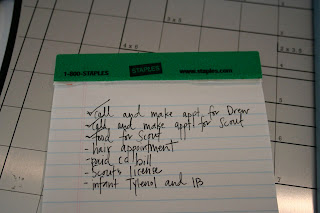 1-800-STAPLES STAPLES www.staples.com
call and make appt. for Drew
call and make appt. for Scout
food for Scout
- hair appointment
- paid cc bill
- Scout's license
- infant Tylenol and IB